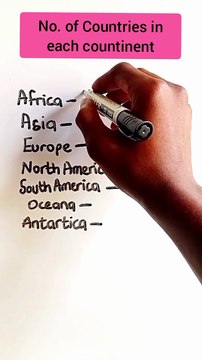 No. of Countries in
each countinent
Africa –
Asia –
Europe –
North America
South America –
Oceana –
Antartica –